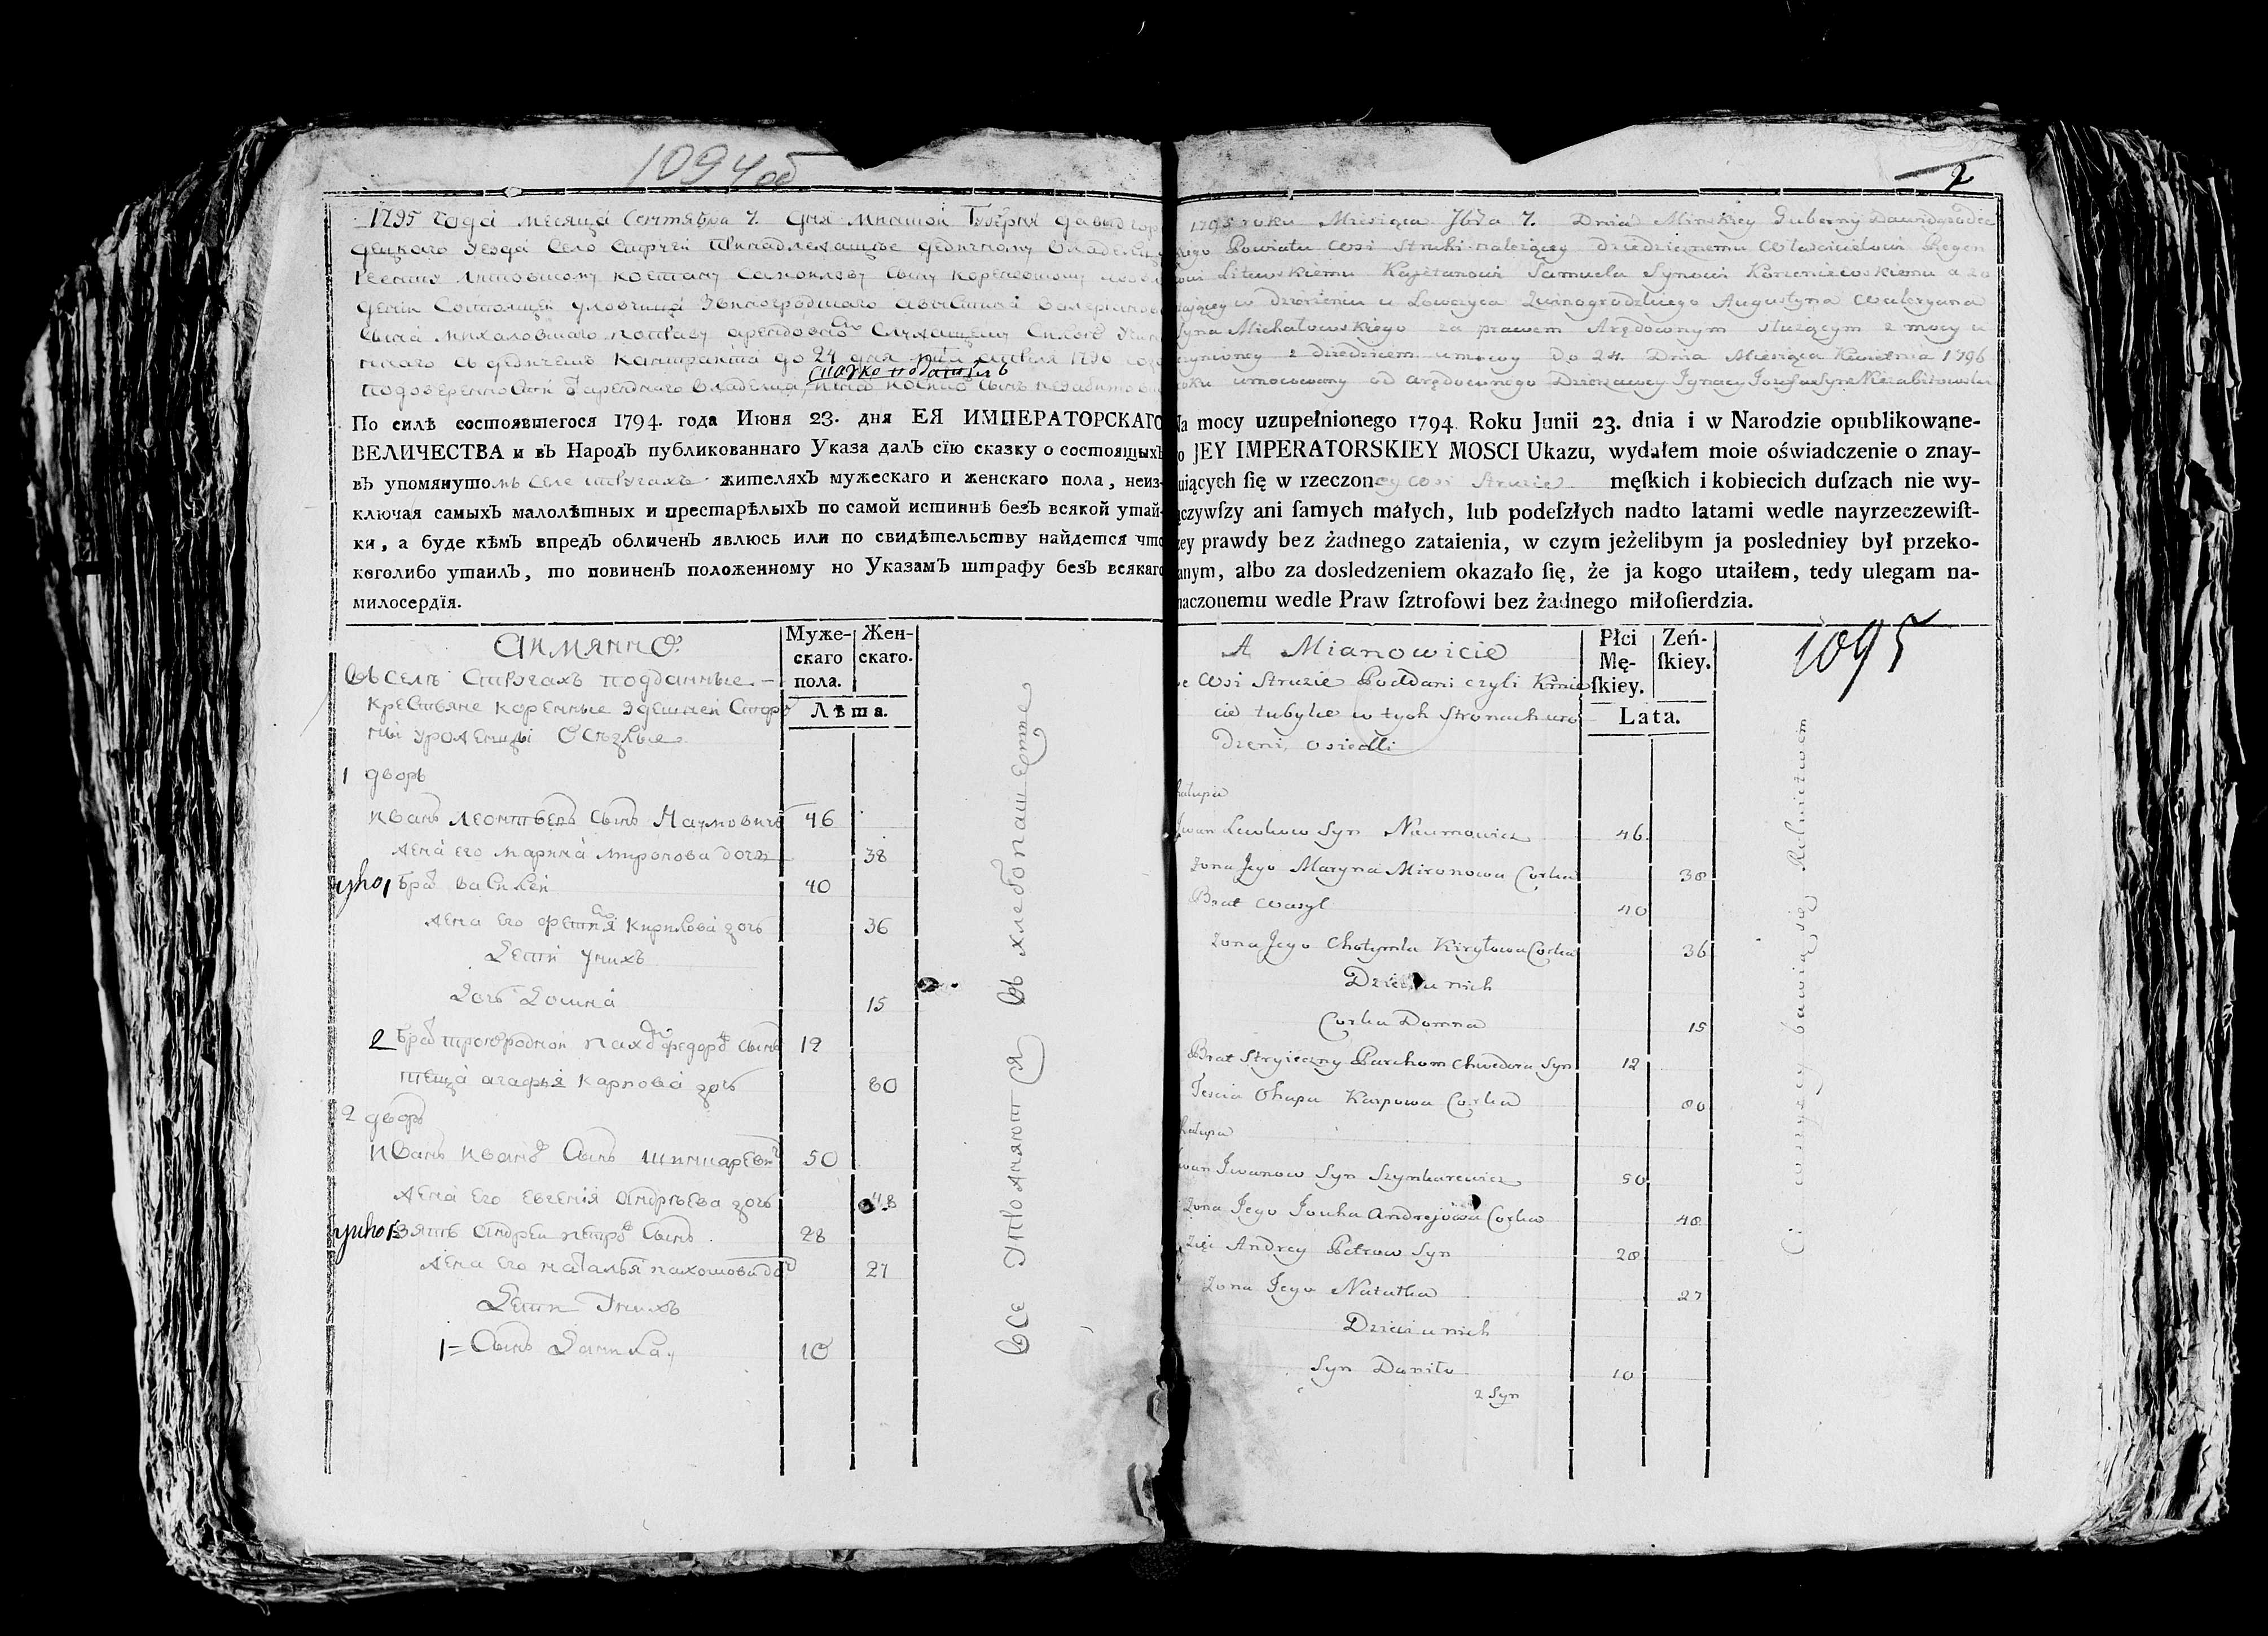 1094 об
1795 года месяца Сентября 7. дня Минской Губернии Давидгоро
децкого уезда Село Струги принадлежащее дедичному Владельцу
Литовскому Сыну
дении Состоящей Ловчица Звиногродского
Сына Михаловского по праву арендовному Служащему
контракта до 24 дня апреля 1796
По силѣ состоявшегося 1794. года Июня 23. дня ЕЯ ИМПЕРАТОРСКАГО
ВЕЛИЧЕСТВА и вЪ НародЪ публикованнаго Указа далЪ сїю сказку о состоящихЪ
вЪ упомянутомъ селе Стругахъ жителяхЪ мужескаго и женскаго пола, неиз-
ключая самыхЪ малолѣтных и престарѣлыхЪ по самой истиннѣ безЪ всякой утай-
ки, а буде кѣмЪ впредЪ обличенЪ явлюсь или по свидѣтельству найдется что
коголибо утаилЪ, то повиненЪ положенному по УказамЪ штрафу безЪ всякаго
милосердїя.
Аимянно
Муже-
скаго
пола.
Жен-
скаго.
Лѣта.
Въ селе Стругахъ подданные
крестьяне коренные здешней Сторо
ны уроженцы Оселые
1 дворъ
Иванъ Леонтьевъ Сынъ Наумовичъ 46
жена его Марина Миронова дочь 38
братъ Василей 40
жена его Фетиния Кирилова дочь 36
Дети у нихъ
Дочь Домна 15
2 братъ троюродной Пахомъ Федоровъ Сынъ 12
теща Агафья Карпова дочь 80
2 дворъ
Иванъ Ивановъ Сынъ Шинкаревичъ 50
жена его Евгения Андреева дочь 48
Зять Андрей Петровъ Сынъ 28
жена его Наталья Пахомова дочь 27
Дети у нихъ
1 = Сынъ Данила 10
Все упражняются въ хлебопашестве
2
1795 roku Miesiąca 7bra 7. Dnia Minskiey Guberny Dawidgrodec
kiego Powiatu Wsi Struhi należącey dziedzicznemu Włascicielowi Regen
towi Litewskiemu Kajetanowi Samuela Synowi Korzeniewskiemu a zo
staiącey w dzierżeniu u Łowczyca Zwinogrodzkiego Augustyna Waleryana
Syna Michałowskiego za prawem Arędownym służącym z mocy u
czynioney z dziedzicem umowy do 24. Dnia Miesiąca Kwietnia 1796
roku umocowany od arędownego Dzierżawcy Ignacy Jozefa Syn Niezabitowski
Na mocy uzupełnionego 1794. Roku Junii 23. dnia i w Narodzie opublikowane-
go JEY IMPERATORSKIEY MOSCI Ukazu, wydałem moie oświadczenie o znay-
duiących ſię w rzeczoney Wsi Struzie męſkich i kobiecich duſzach nie wy-
łączywſzy ani ſamych małych, lub podeſzłych nadto latami wedle nayrzeczewiſt-
ſzey prawdy bez żadnego zataienia, w czym jeżelibym ja posledniey był przeko-
nanym, albo za dosledzeniem okazało ſię, że ja kogo utaiłem, tedy ulegam na-
znaczonemu wedle Praw ſztrofowi bez żadnego miłoſierdzia.
A Mianowicie
Płci
Mę-
ſkiey.
Zeń-
ſkiey.
Lata.
1095
we Wsi Struzie Poddani czyli Kmie
cie tubylce w tych Stronach uro
dzeni, osiedli
Chałupa
Iwan Lewkow Syn Naumowicz 46
Zona Jego Maryna Mironowa Corka 38
Brat Wasyl 40
Zona Jego Chotymla Kiryłowa Corka 36
Dzieci u nich
Corka Domna 15
Brat Stryieczny Parchom Chwedora Syn 12
Teścia Ohapa Karpowa Corka 80
Chałupa
Iwan Iwanow Syn Szynkarewicz 50
Zona Jego Jouha Andrejowa Corka 48
Zięć Andrey Petrow Syn 28
Zona Jego Natałka 27
Dzieci u nich
Syn Daniło 10
2 Syn
Ci wszyscy bawią się Rolnictwem